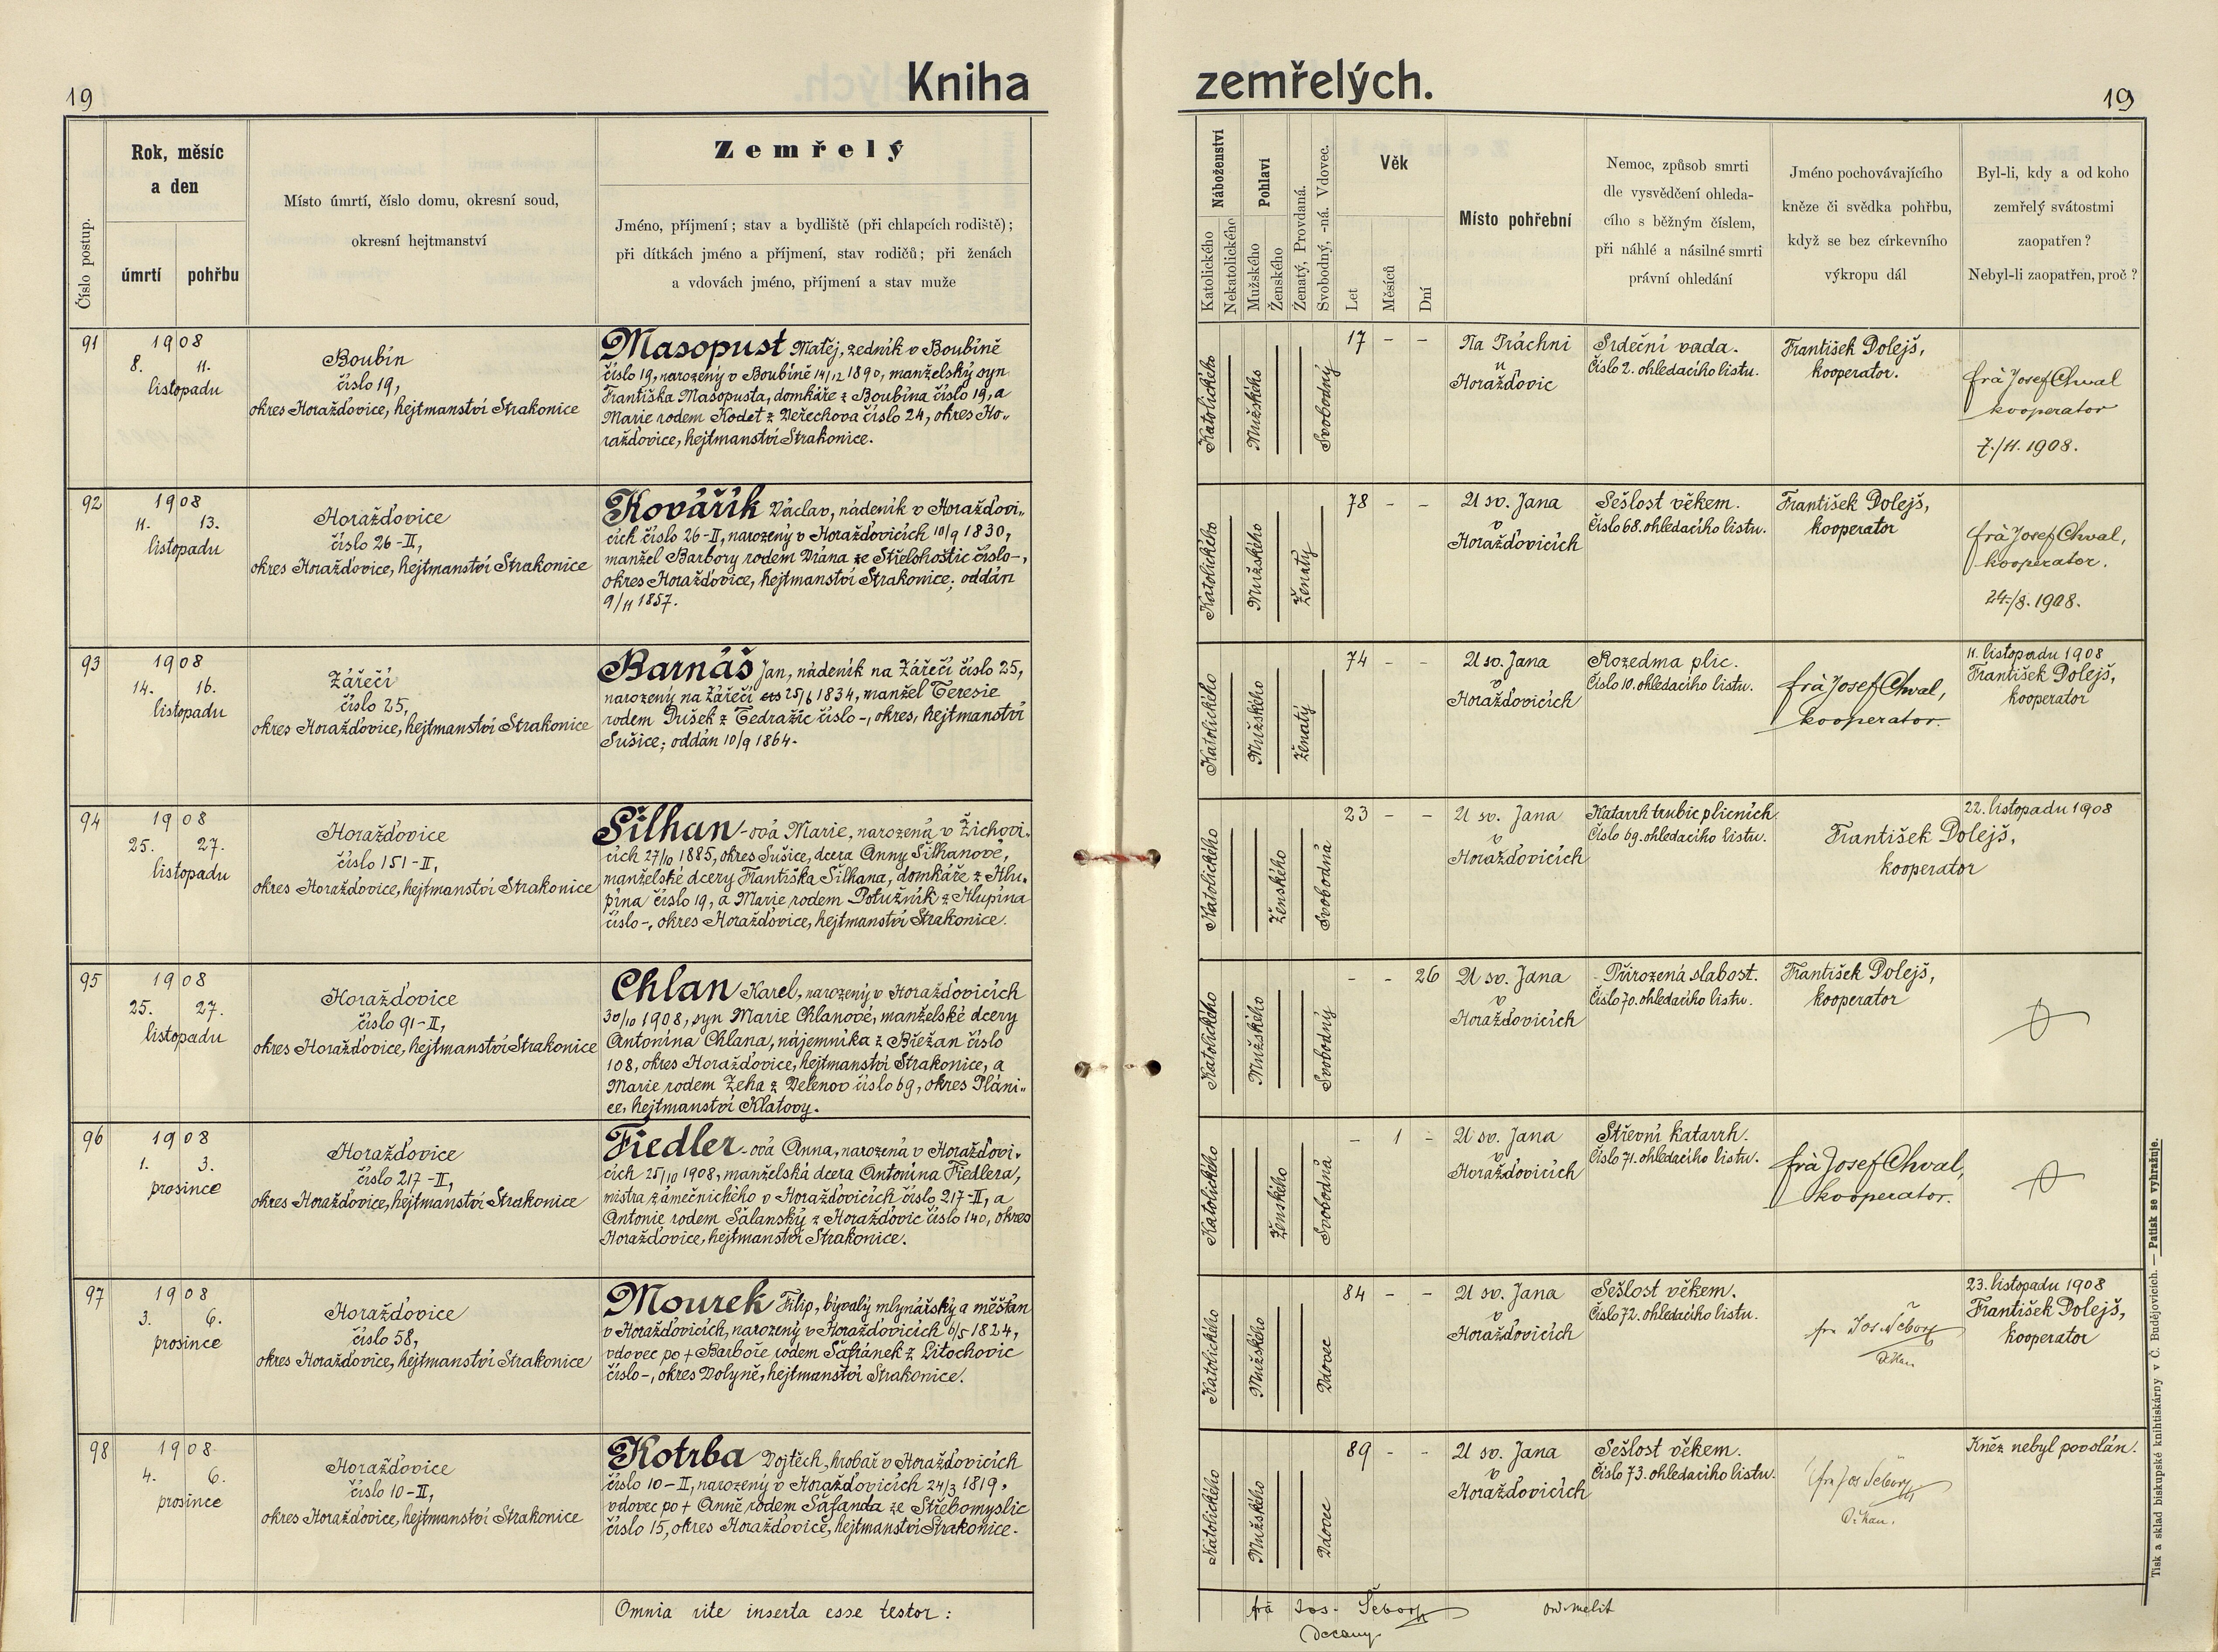 19
Kniha
zemřelých.
19
Číslo postup.
Rok, měsíc
a den
úmrtí
pohřbu
Místo úmrtí, číslo domu, okresní soud,
okresní hejtmanství
Zemřelý
Jméno, příjmení; stav a bydliště (při chlapcích rodiště);
při dítkách jméno a příjmení, stav rodičů; při ženách
a vdovách jméno, příjmení a stav muže
Náboženství
Katolického
Nekatolického
Pohlaví
Mužského
Ženského
Ženatý, Provdaná.
Svobodný, -ná. Vdovec.
Věk
Let
Měsíců
Dní
Místo pohřební
Nemoc, způsob smrti
dle vysvědčení ohleda-
cího s běžným číslem,
při náhlé a násilné smrti
právní ohledání
Jméno pochovávajícího
kněze či svědka pohřbu,
když se bez církevního
výkropu dál
Byl-li, kdy a od koho
zemřelý svátostmi
zaopatřen?
Nebyl-li zaopatřen, proč?
91
1908
8. 11.
listopadu
Boubín
číslo 19,
okres Horažďovice, hejtmanství Strakonice
Masopust Matěj, zedník v Boubíně
číslo 19, narozený v Boubíně 14/12 1890, manželský syn
Františka Masopusta, domkáře z Boubína číslo 19, a
Marie rodem Kodet z Veřechova číslo 24, okres Ho-
ražďovice, hejtmanství Strakonice.
Katolického
Mužského
Svobodný
17 - -
Na Práchni
u
Horažďovic
Srdeční vada.
Číslo 2. ohledacího listu.
František Dolejš,
kooperator.
frà Josef Chval
kooperator
7./11. 1908.
92
1908
11. 13.
listopadu
Horažďovice
číslo 26-II,
okres Horažďovice, hejtmanství Strakonice
Kovářík Václav, nádeník v Horažďovi-
cích číslo 26-II, narozený v Horažďovicích 10/9 1830,
manžel Barbory rodem Vrána ze Střelohoštic číslo-,
okres Horažďovice, hejtmanství Strakonice; oddán
9/11 1857.
Katolického
Mužského
Ženatý
78 - -
U sv. Jana
v
Horažďovicích
Sešlost věkem.
Číslo 68. ohledacího listu.
František Dolejš,
kooperator
frà Josef Chval,
kooperator.
24./8. 1908.
93
1908
14. 16.
listopadu
Zářečí
číslo 25,
okres Horažďovice, hejtmanství Strakonice
Barnáš Jan, nádeník na Zářečí číslo 25,
narozený na Zářečí 25/6 1834, manžel Teresie
rodem Dušek z Tedražic číslo -, okres, hejtmanství
Sušice; oddán 10/9 1864.
Katolického
Mužského
Ženatý
74 - -
U sv. Jana
v
Horažďovicích
Rozedma plic.
Číslo 10. ohledacího listu.
frà Josef Chval,
kooperator.
11. listopadu 1908
František Dolejš,
kooperator
94
1908
25. 27.
listopadu
Horažďovice
číslo 151-II,
okres Horažďovice, hejtmanství Strakonice
Šilhan-ová Marie, narozená v Žichovi-
cích 27/10 1885, okres Sušice, dcera Anny Šilhanové,
manželské dcery Františka Šilhana, domkáře z Hlu-
pína číslo 19, a Marie rodem Potužník z Hlupína
číslo -, okres Horažďovice, hejtmanství Strakonice.
Katolického
Ženského
Svobodná
23 - -
U sv. Jana
v
Horažďovicích
Katarrh trubic plicních
Číslo 69. ohledacího listu.
22. listopadu 1908
František Dolejš,
kooperator
95
1908
25. 27.
listopadu
Horažďovice
číslo 91-II,
okres Horažďovice, hejtmanství Strakonice
Chlan Karel, narozený v Horažďovicích
30/10 1908, syn Marie Chlanové, manželské dcery
Antonína Chlana, nájemníka z Břežan číslo
108, okres Horažďovice, hejtmanství Strakonice, a
Marie rodem Žeha z Velenov číslo 69, okres Pláni-
ce, hejtmanství Klatovy.
Katolického
Mužského
Svobodný
- - 26
U sv. Jana
v
Horažďovicích
Přirozená slabost.
Číslo 70. ohledacího listu.
František Dolejš,
kooperator
96
1908
1. 3.
prosince
Horažďovice
číslo 217-II,
okres Horažďovice, hejtmanství Strakonice
Fiedler-ová Anna, narozená v Horažďovi-
cích 25/10 1908, manželská dcera Antonína Fiedlera,
mistra zámečnického v Horažďovicích číslo 217-II, a
Antonie rodem Šalanský z Horažďovic číslo 140, okres
Horažďovice, hejtmanství Strakonice.
Katolického
Ženského
Svobodná
- 1 -
U sv. Jana
v
Horažďovicích
Střevní katarrh.
Číslo 71. ohledacího listu.
frà Josef Chval,
kooperator.
97
1908
3. 6.
prosince
Horažďovice
číslo 58,
okres Horažďovice, hejtmanství Strakonice
Mourek Filip, bývalý mlynářský a měšťan
v Horažďovicích, narozený v Horažďovicích 6/5 1824,
vdovec po + Barboře rodem Šafránek z Litochovic
číslo -, okres Volyně, hejtmanství Strakonice.
Katolického
Mužského
Vdovec
84 - -
U sv. Jana
v
Horažďovicích
Sešlost věkem.
Číslo 72. ohledacího listu.
fra Jos. Šeborz
Děkan.
23. listopadu 1908
František Dolejš,
kooperator
98
1908
4. 6.
prosince
Horažďovice
číslo 10-II,
okres Horažďovice, hejtmanství Strakonice
Kotrba Vojtěch, hrobař v Horažďovicích
číslo 10-II, narozený v Horažďovicích 24/3 1819,
vdovec po + Anně rodem Šafanda ze Střebomyslic
číslo 15, okres Horažďovice, hejtmanství Strakonice.
Katolického
Mužského
Vdovec
89 - -
U sv. Jana
v
Horažďovicích
Sešlost věkem.
Číslo 73. ohledacího listu.
fra Jos Šeborz
Děkan.
Kněz nebyl povolán.
Omnia rite inserta esse testor:
frà Jos. Šeborz
Decanus
Tisk a sklad biskupské knihtiskárny v Č. Budějovicích. — Patisk se vyhražuje.